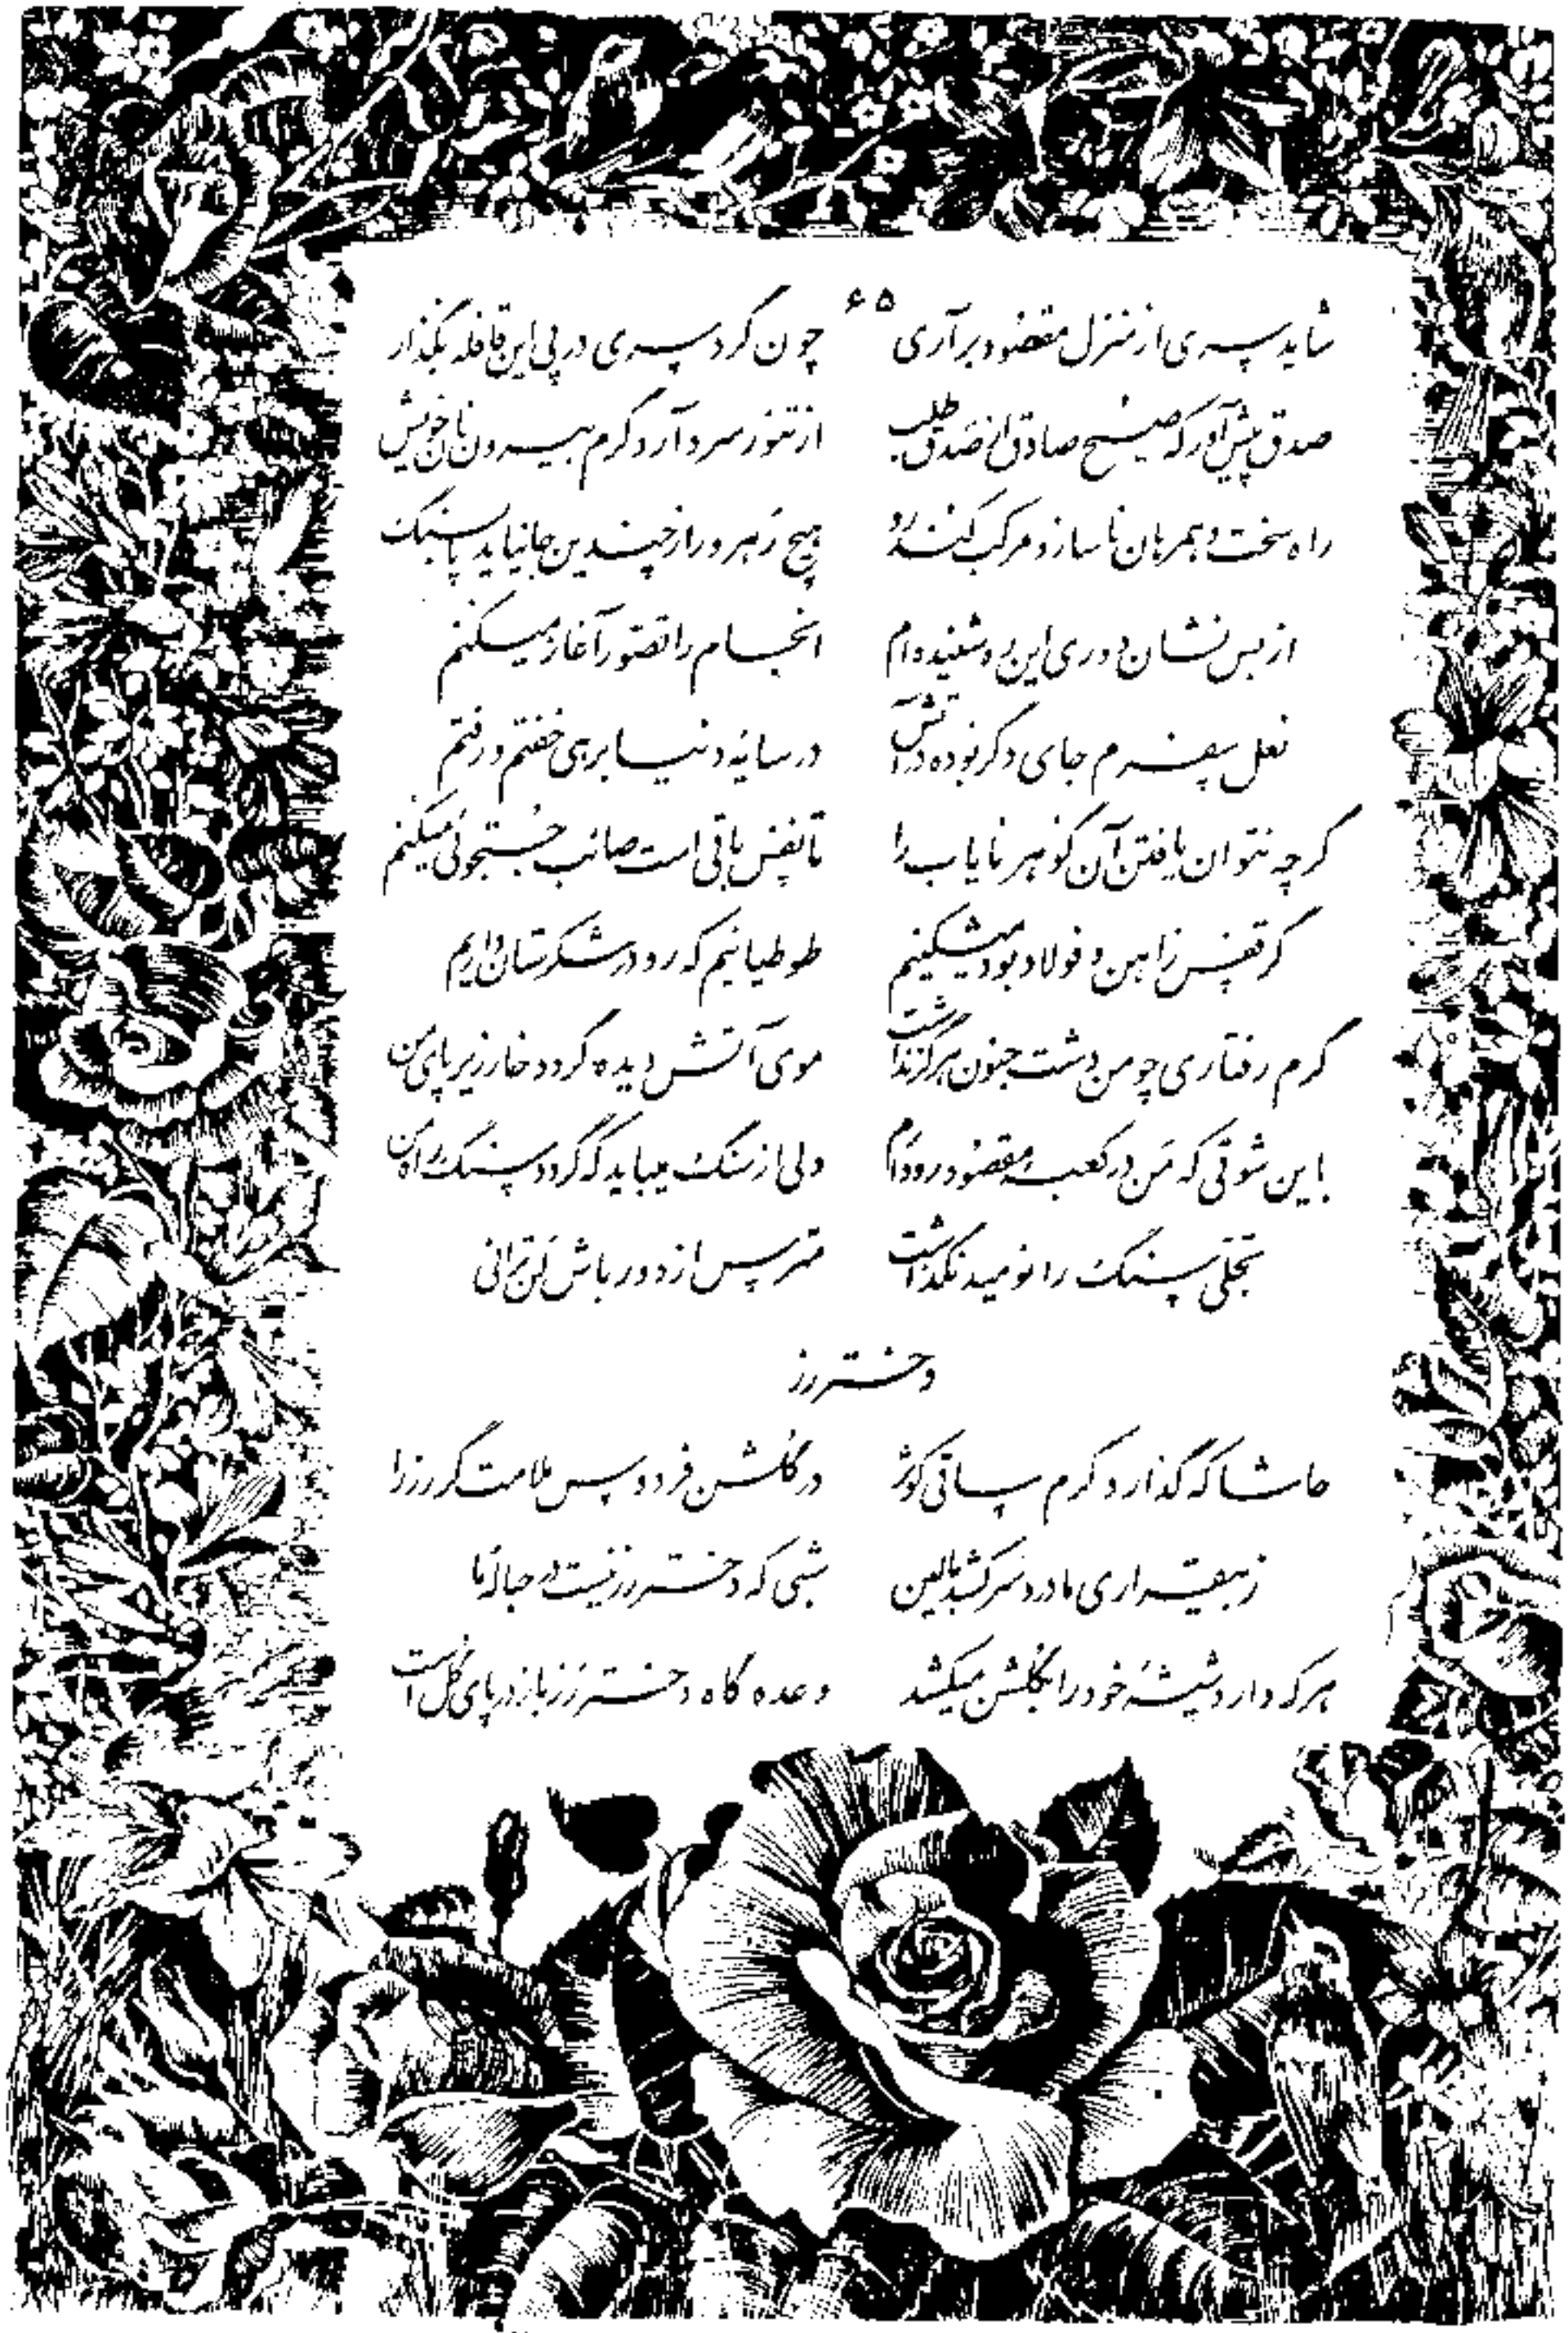 ۶۵
شاید سری از منزل مقصود برآری چون گرد سری در پی این قافله بگذار
صدق پیش آور که صبح صادق از صدق طلب از تنور سرد آرد گرم بیرون نان خویش
راه سخت و همرهان ناساز و مرکب کندرو هیچ رهرو را ز چندین جا نیاید پا بسنگ
از بس نشان دوری این ره شنیده‌ام انجام را تصور آغاز میکنم
نعل سفرم جای دگر بوده در آتش در سایهٔ دنیا برهی خفتم و رفتم
گرچه نتوان یافتن آن گوهر نایاب را تا نفس باقی است صائب جستجوئی میکنم
گر قفس ز آهن و فولاد بود میشکنیم طوطیانیم که رو در شکرستان داریم
گرم رفتاری چو من دشت جنون هرگز نداشت موی آتش دیده گردد خار زیر پای من
باین شوقی که من در کعبه مقصود رو دارم دلی از سنگ میباید که گردد سنگ راه من
تجلی سنگ را نومید نگذاشت مترس از دور باش لن ترانی
دختر رز
حاشا که گذارد کرم ساقی کوثر در گلشن فردوس ملامتگر رز را
ز بیقراری ما درد سر کشد بالین شبی که دختر رز نیست در حباله ما
هر که دارد شیشهٔ خود را بگلشن میکشد وعده گاه دختر رز باز در پای گل است